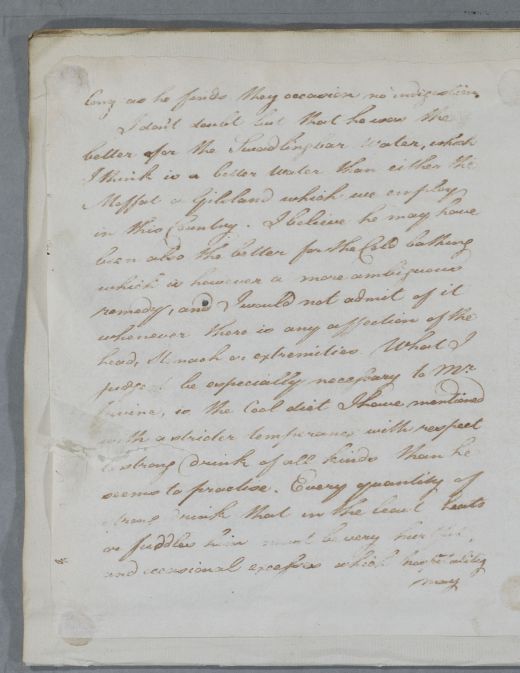 long as he finds they occasion no indigestion
I don't doubt but that he was the
better for the Swadlingbar Water, which
I think is a better water than either the
Moffat or Gilsland which we employ
in this Country. I believe he may have
been also the better for the Cold bathing
which is however a more ambiguous
remedy, and I would not admit of it
whenever there is any affection of the
head, Stomach or extremities. What I
judge to be especially necessary to Mr
Irvine, is the Cool diet I have mentioned
with a stricter temperance with respect
to strong drink of all kinds than he
seems to practise. Every quantity of
strong drink that in the least heats
or fuddles him must be very hurtful,
and occasional excesses which hospitality
may